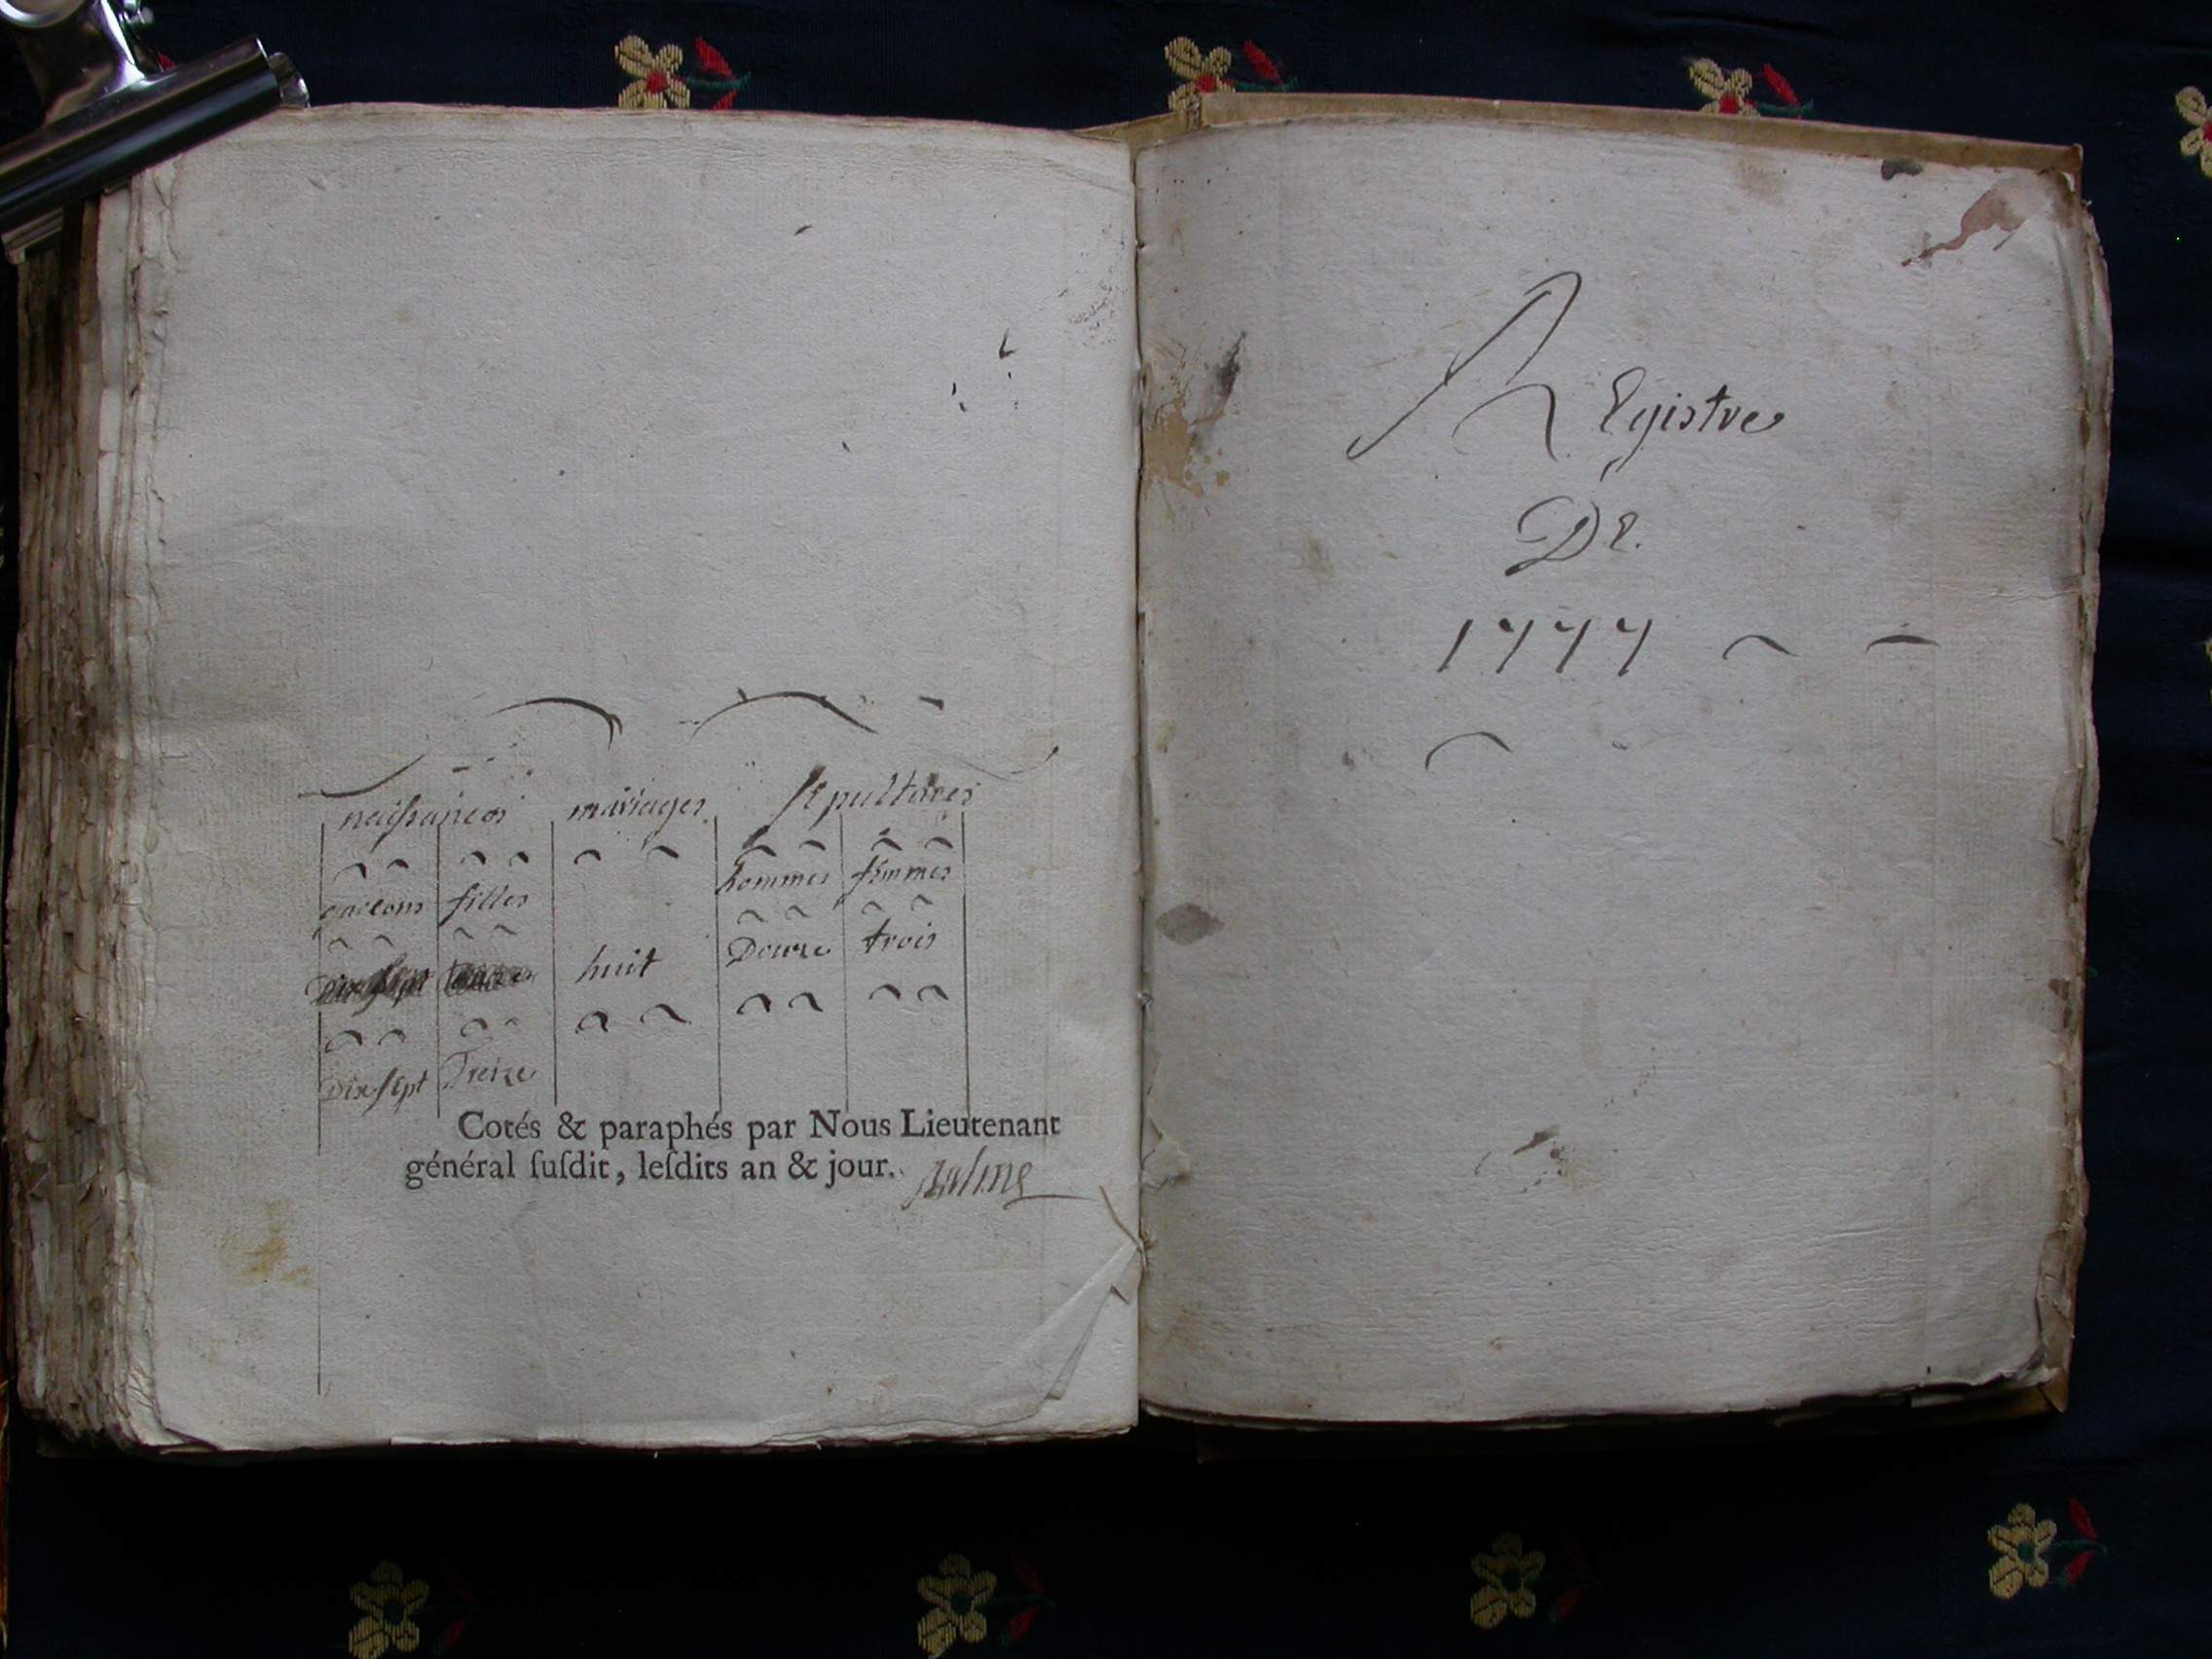 naissances mariages sepultures
garcons filles hommes femmes
huit Douze trois
Dix sept Treize
Cotés & paraphés par Nous Lieutenant
général ſuſdit, leſdits an & jour.
Registre
De
1777